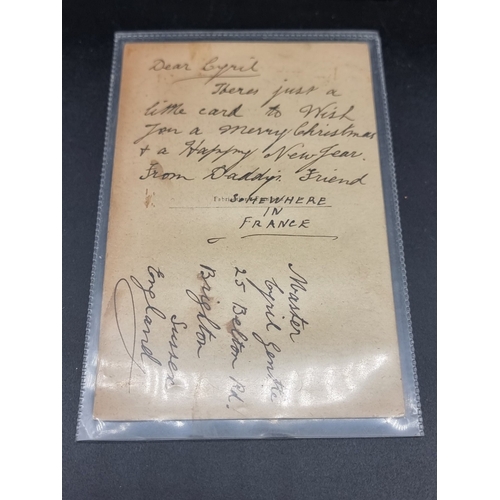 Dear Cyril
Heres just a
little card to Wish
You a Merry Christmas
& a Happy New Year.
From Daddys. Friend
SOMEWHERE
IN
FRANCE
Master
Cyril Gentle
25 Belton Rd.
Brighton
Sussex
England